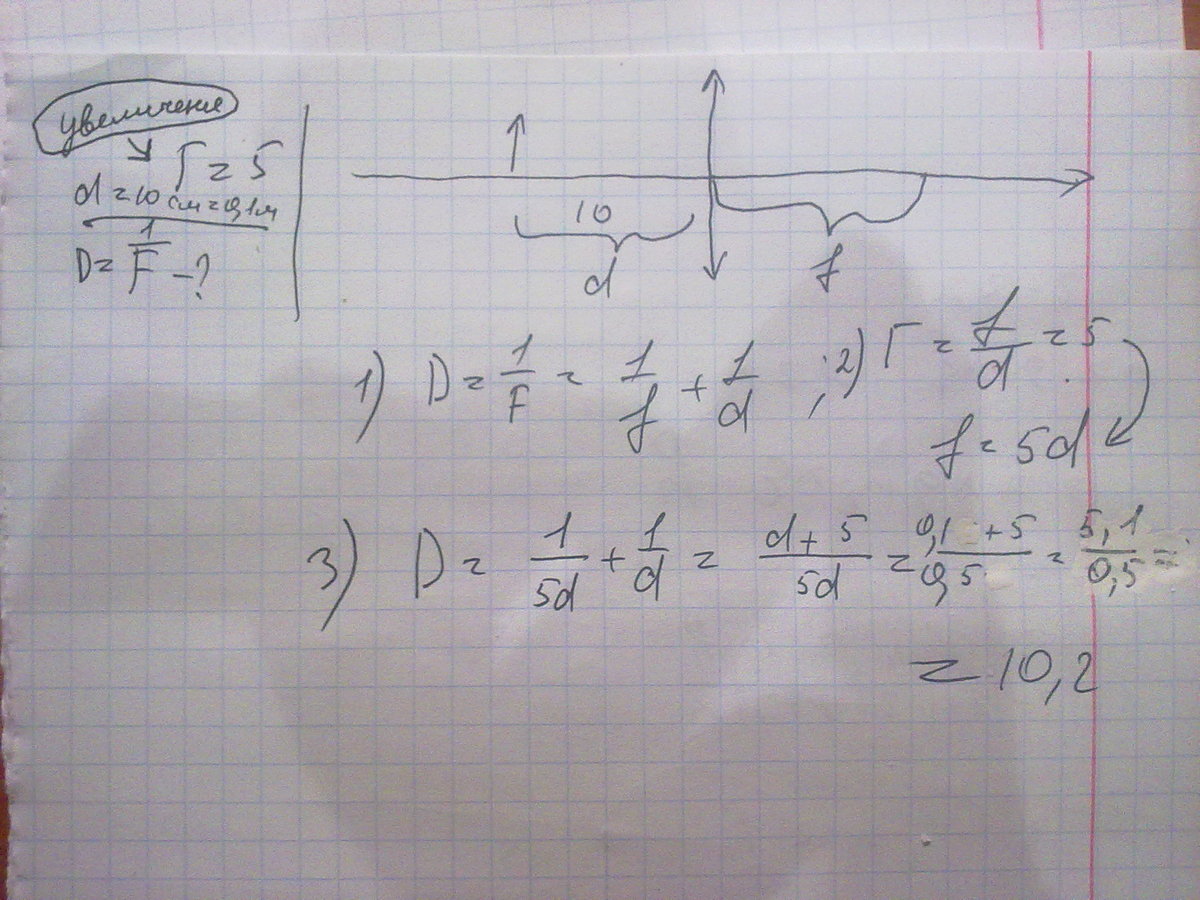 увеличение
Г = 5
d = 10 см = 0,1 м
D = 1/F - ?
10
d
f
1) D = 1/F = 1/f + 1/d ; 2) Г = f/d = 5
f = 5d
3) D = 1/5d + 1/d = d + 5/5d = 0,1 + 5/0,5 = 5,1/0,5 =
= 10,2